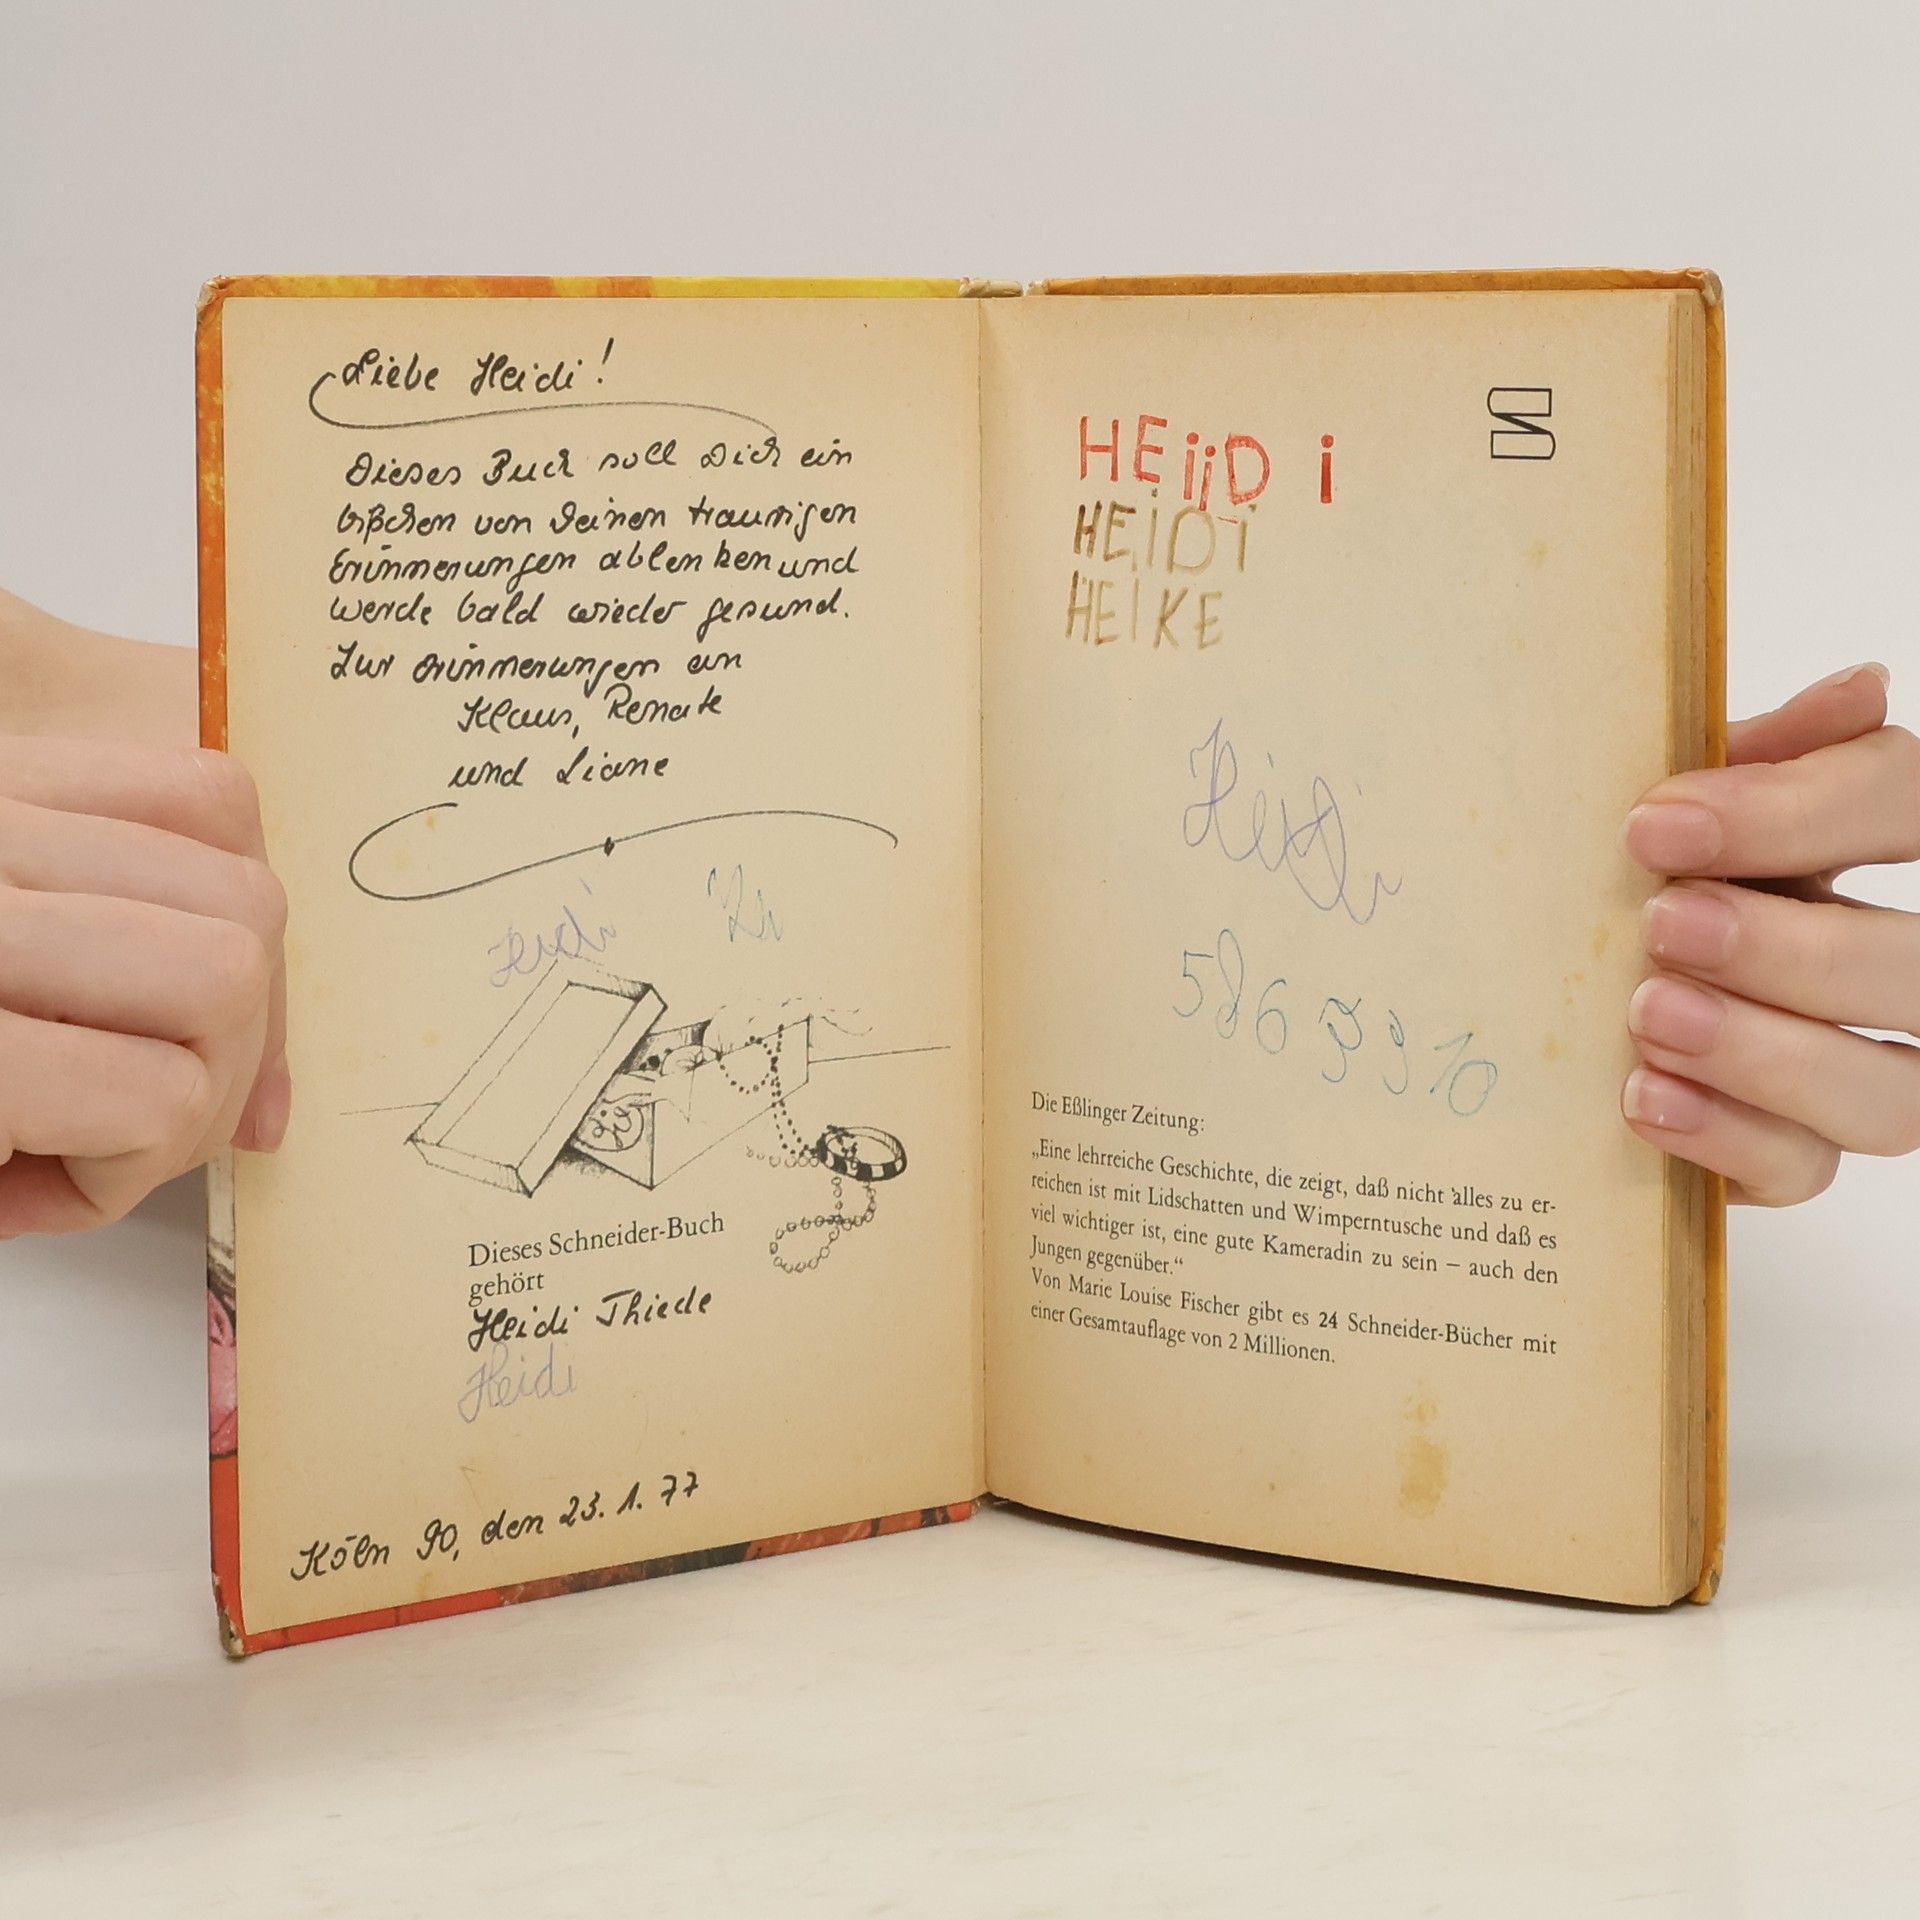 Liebe Heidi!
Dieses Buch soll Dich ein
bißchen von Deinen traurigen
Erinnerungen ablenken und
werde bald wieder gesund.
Zur Erinnerungen an
Klaus, Renate
und Liane
Heidi
Dieses Schneider-Buch
gehört
Heidi Thiede
Heidi
Köln 90, den 23. 1. 77
HEijD i
HEiDi
HEIKE
Heidi
586 9 9 10
Die Eßlinger Zeitung:
„Eine lehrreiche Geschichte, die zeigt, daß nicht alles zu er-
reichen ist mit Lidschatten und Wimperntusche und daß es
viel wichtiger ist, eine gute Kameradin zu sein – auch den
Jungen gegenüber.“
Von Marie Louise Fischer gibt es 24 Schneider-Bücher mit
einer Gesamtauflage von 2 Millionen.